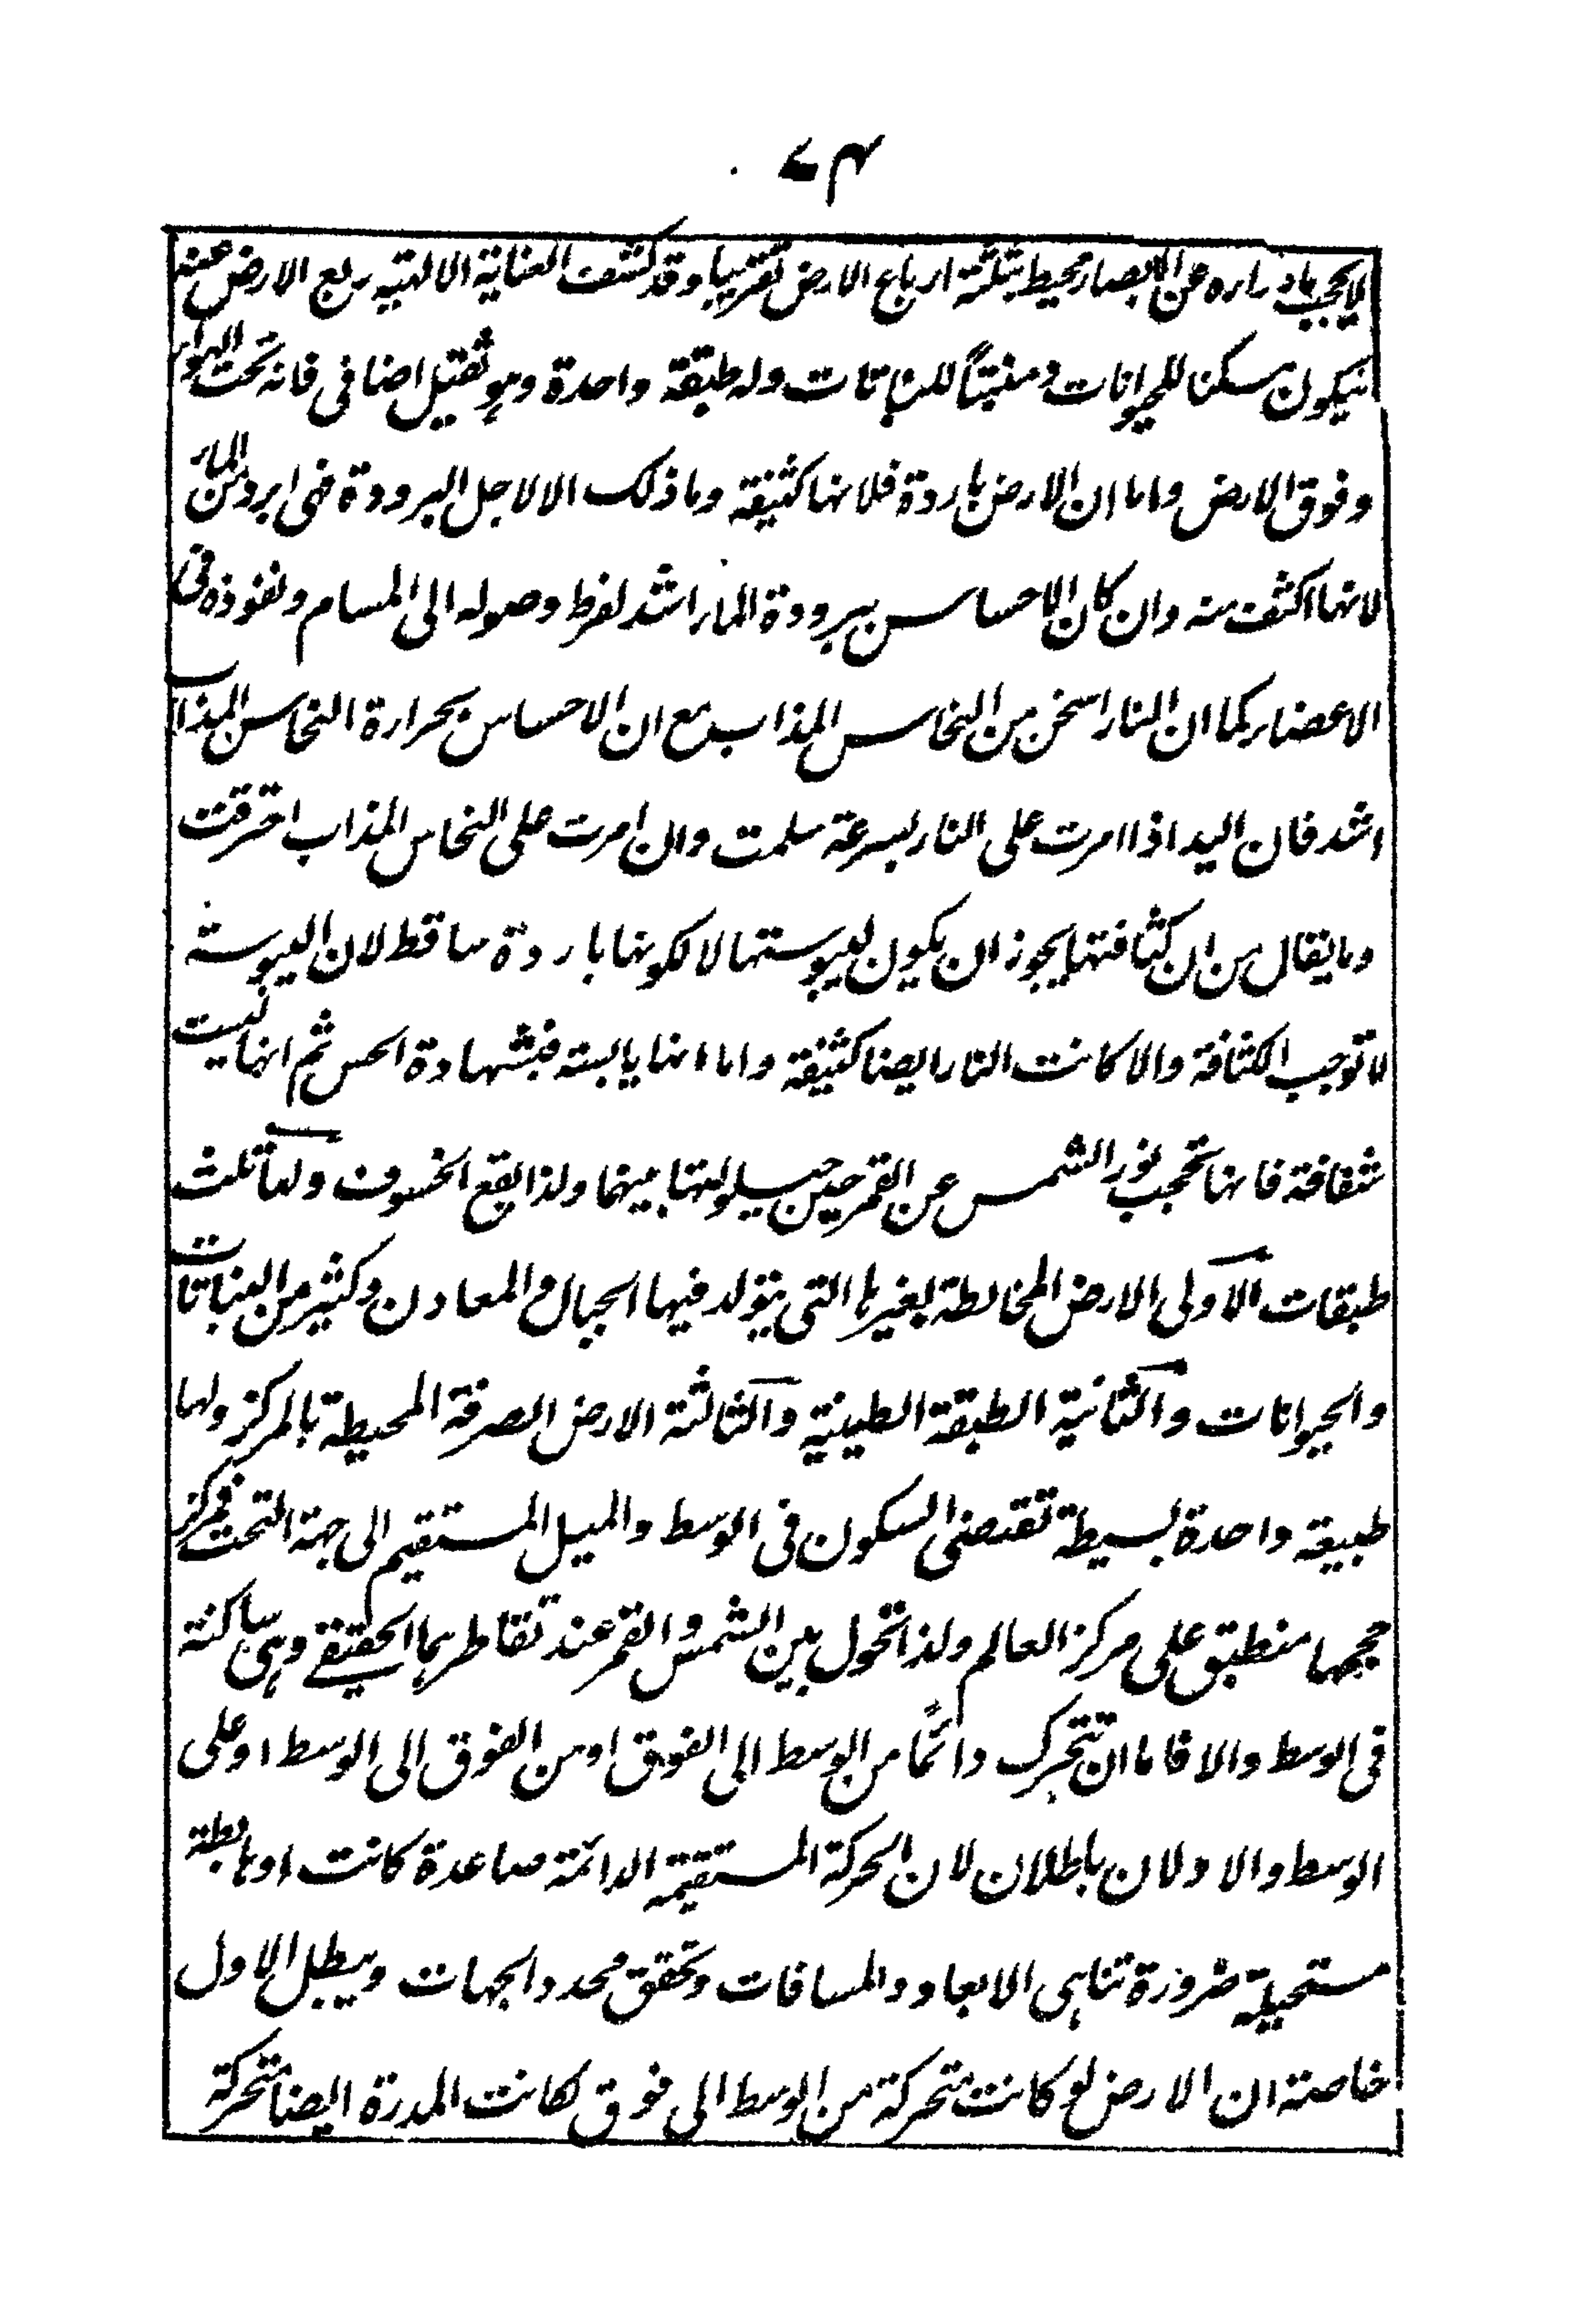 ۷۴
لا يحجب ما وراره عن الابصار محيط بثلثة ارباع الارض تقريبا وقد كشف العناية الالهية ربع الارض عنه
ليكون مسكنا للحيوانات ومنبتاً للنباتات وله طبقة واحدة وهو ثقيل اضافى فانه تحت الهوار
وفوق الارض واما ان الارض باردة فلانها كثيفة وما ذلك الا لاجل البرودة فهى ابرد من المار
لانها اكثف منه وان كان الاحساس ببرودة المار اشد لفرط وصوله الى المسام ونفوذه فى
الاعضار كما ان النار اسخن من النحاس المذاب مع ان الاحساس بحرارة النحاس المذاب
اشد فان اليد اذا امرت على النار بسرعة سلمت وان امرت على النحاس المذاب احترقت
وما يقال من ان كثافتها يجوز ان يكون ليبوستها لا لكونها باردة ساقط لان اليبوسة
لا توجب الكثافة والا كانت النار ايضا كثيفة واما انها يابسة فبشهادة الحس ثم انها ليست
شفافة فانها تحجب نور الشمس عن القمر حين حيلولتها بينهما ولذا يقع الخسوف ولها ثلث
طبقات الاولى الارض المخالطة بغيرها التى يتولد فيها الجبال والمعادن وكثير من النباتات
والحيوانات والثانية الطبقة الطينية والثالثة الارض الصرفة المحيطة بالمركز ولها
طبيعة واحدة بسيطة تقتضى السكون فى الوسط والميل المستقيم الى جهة التحت فمركز
حجمها منطبق على مركز العالم ولذا تحول بين الشمس والقمر عند تقاطرهما الحقيقے وهى ساكنة
فى الوسط والا فاما ان تتحرك دائمًا من الوسط الى الفوق او من الفوق الى الوسط او على
الوسط والاولان باطلان لان الحركة المستقيمة الدائمة صاعدة كانت او هابطة
مستحيلة ضرورة تناهى الابعاد والمسافات وتحقق محدد الجهات ويبطل الاول
خاصة ان الارض لو كانت متحركة من الوسط الى فوق لكانت المدرة ايضا متحركة